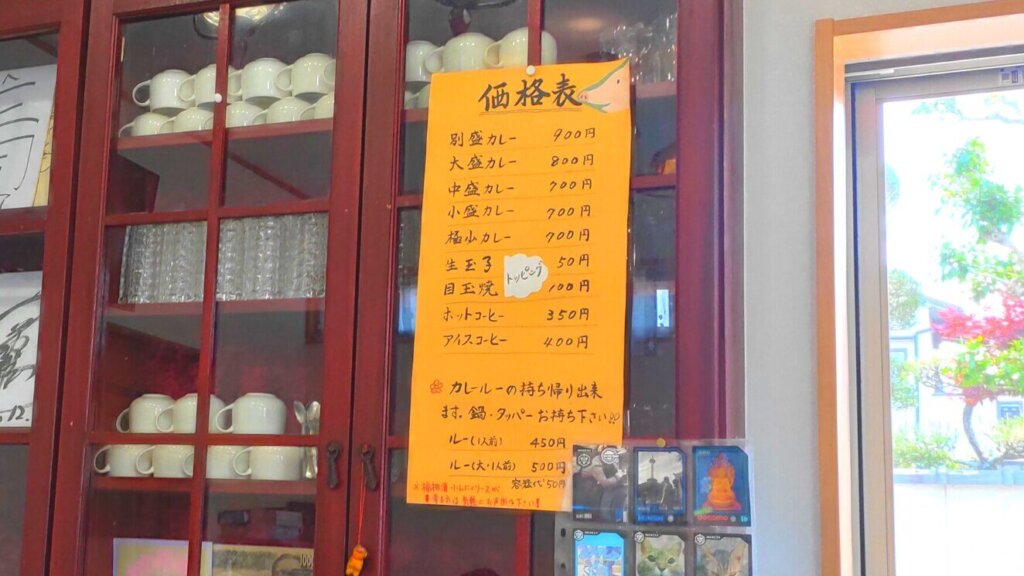 価格表
別盛カレー 900円
大盛カレー 800円
中盛カレー 700円
小盛カレー 700円
極小カレー 700円
生玉子 50円
トッピング
目玉焼 100円
ホットコーヒー 350円
アイスコーヒー 400円
カレールーの持ち帰り出来
ます。鍋・タッパーお持ち下さい
ルー(1人前) 450円
ルー(大・1人前) 500円
容器代50円